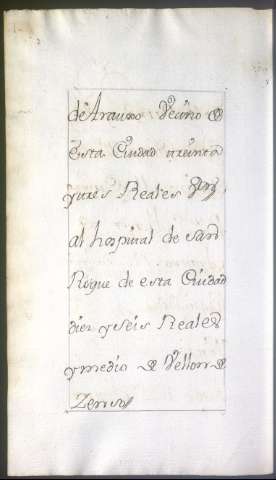 de Arauxo Vecino de
esta Ciudad treinta
y tres Reales
al hospital de San
Roque de esta Ciudad
diez y seis Reales
y medio de Vellon de
Zenso